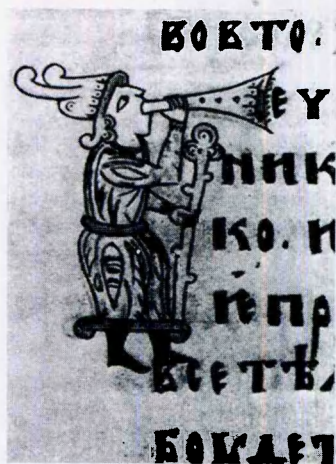 ВО ВТО.
ЕУ
НИК
КО. И
И ПР
ВСЕ ТѢ
БОИДЕТ